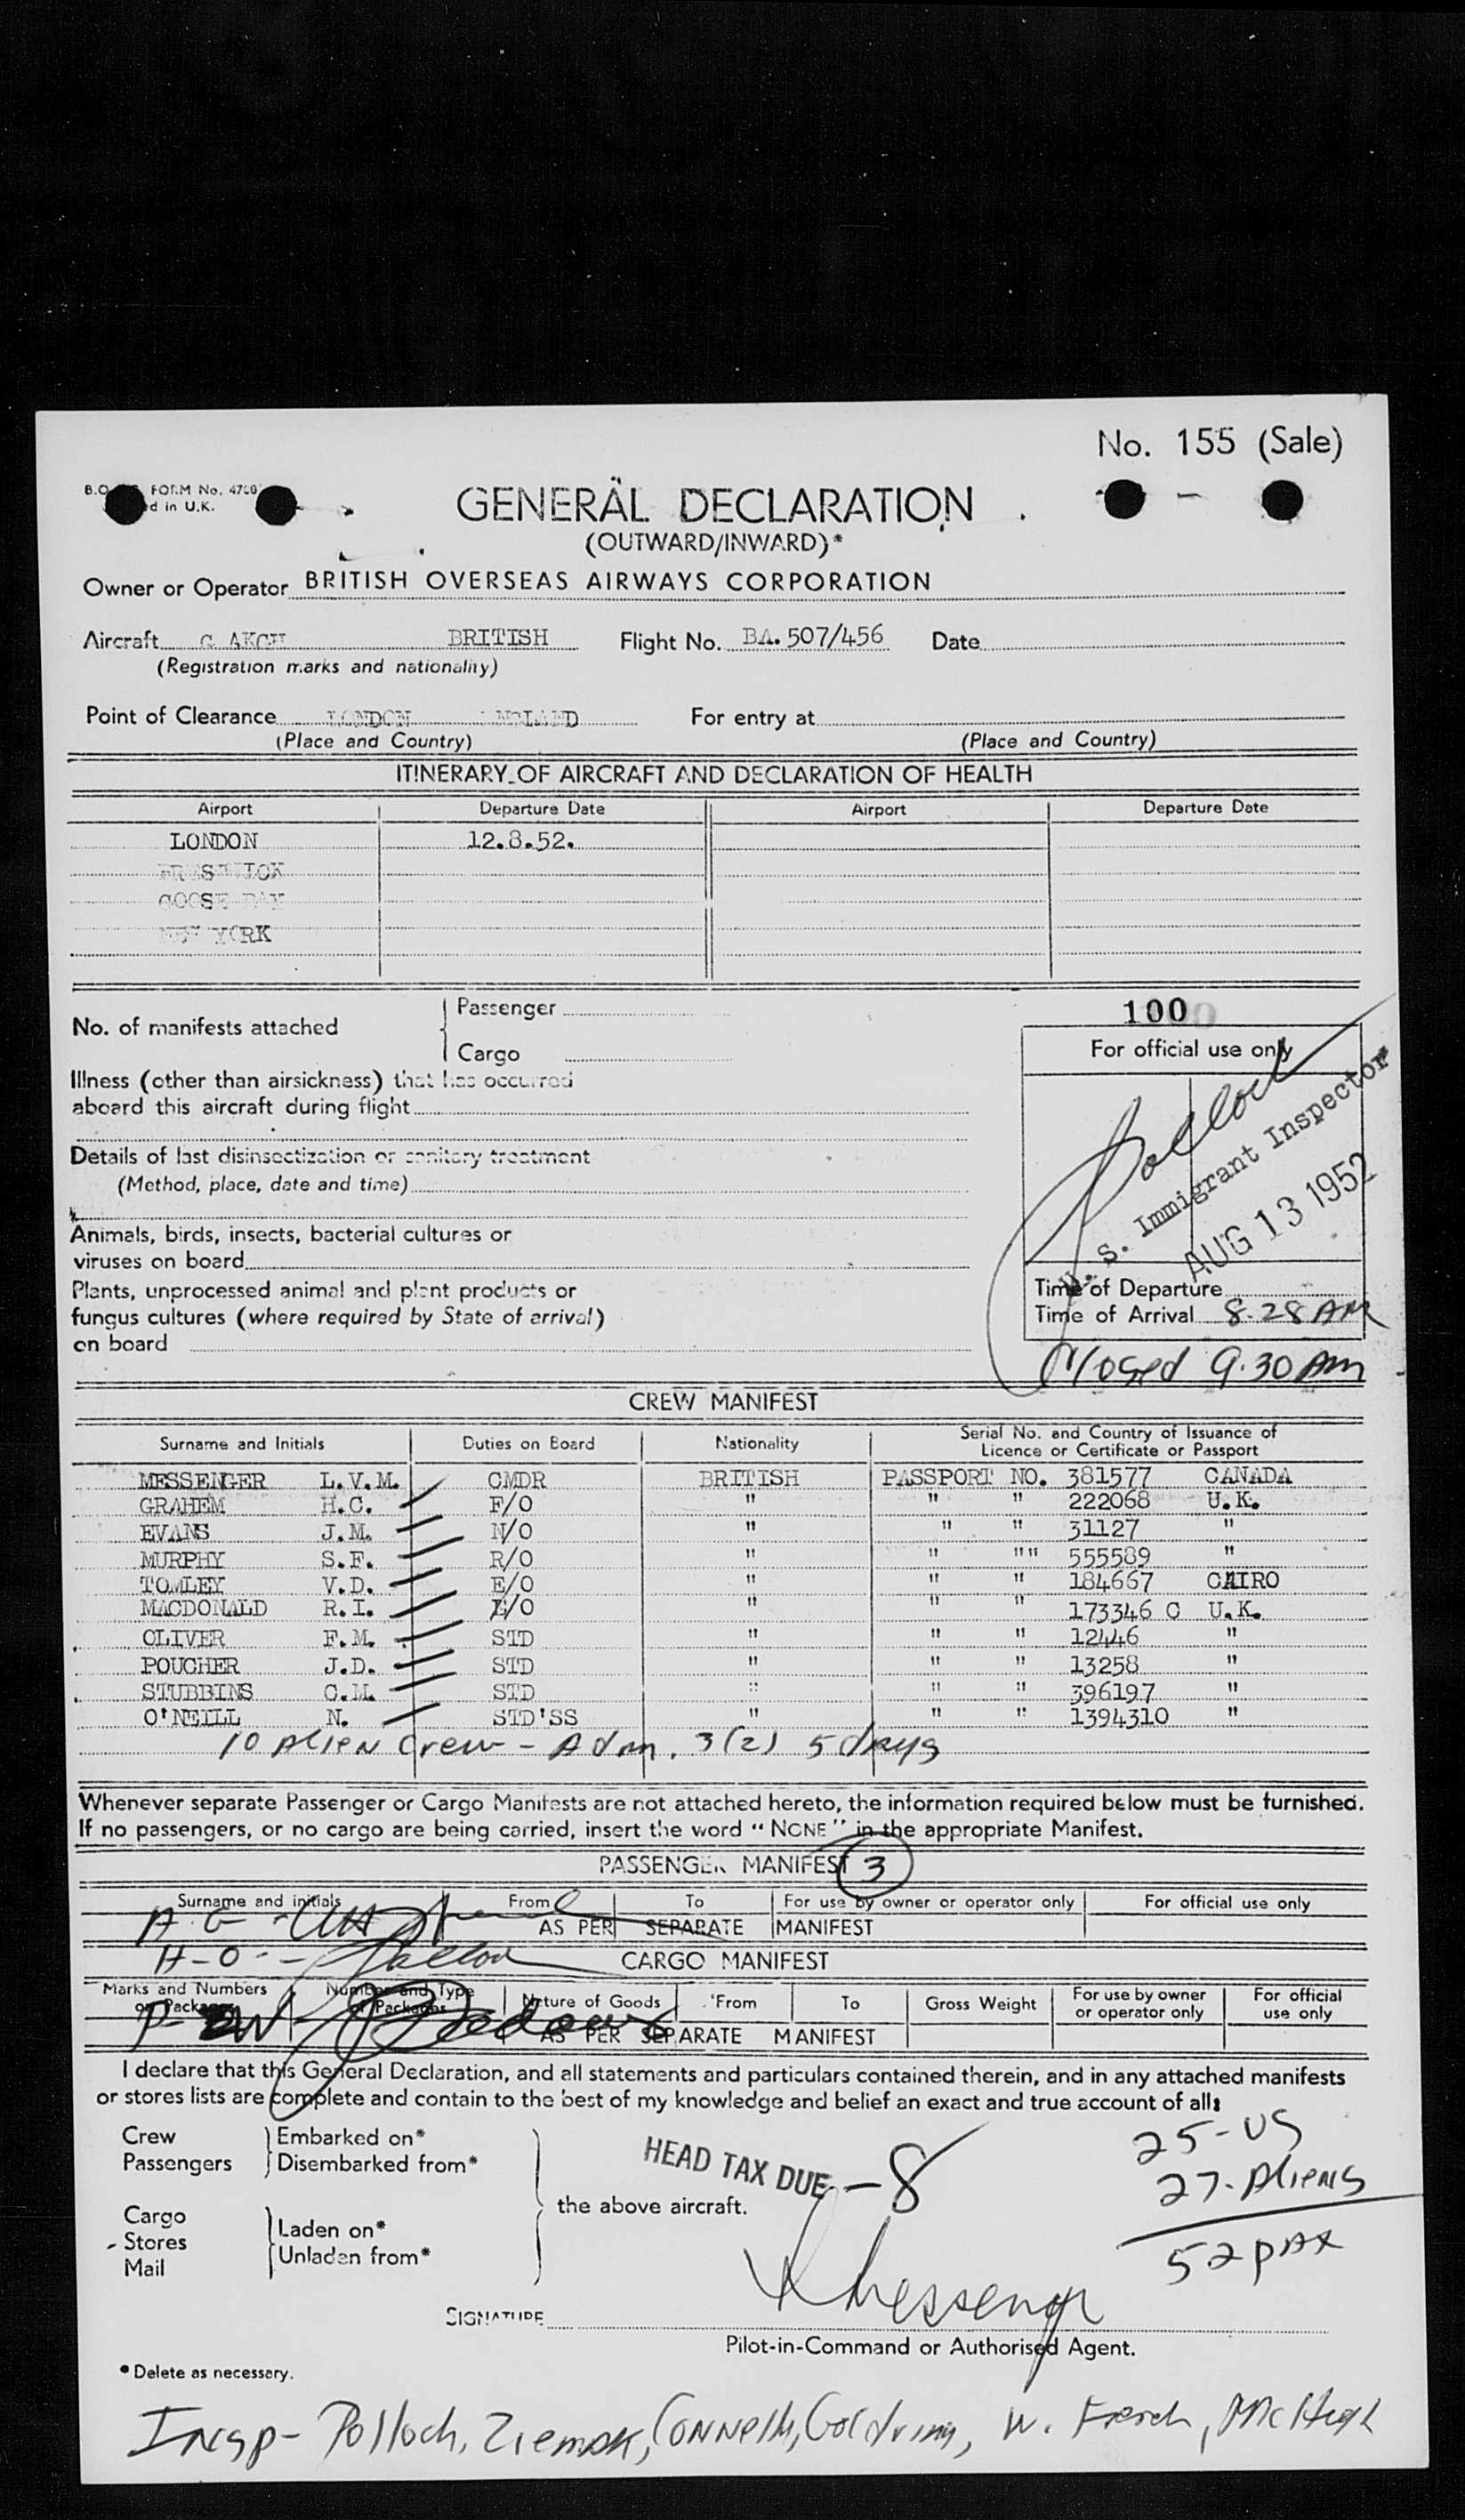 No. 155 (Sale)
FORM No.
d in U.K.
GENERAL DECLARATION
(OUTWARD/INWARD)*
Owner or Operator BRITISH OVERSEAS AIRWAYS CORPORATION
Aircraft G AKGH BRITISH Flight No. BA. 507/456 Date
(Registration marks and nationality)
Point of Clearance LONDON ENGLAND For entry at
(Place and Country) (Place and Country)
ITINERARY OF AIRCRAFT AND DECLARATION OF HEALTH
Airport Departure Date Airport Departure Date
LONDON 12.8.52.
PRESTWICK
GOOSE BAY
NEW YORK
No. of manifests attached { Passenger
Cargo
100
For official use only
Illness (other than airsickness) that has occurred
aboard this aircraft during flight
Details of last disinsectization or sanitary treatment
(Method, place, date and time)
Pollock
U. S. Immigrant Inspector
AUG 13 1952
Animals, birds, insects, bacterial cultures or
viruses on board
Plants, unprocessed animal and plant products or
fungus cultures (where required by State of arrival)
on board
Time of Departure
Time of Arrival 8.28 AM
Closed 9.30 Am
CREW MANIFEST
Surname and Initials Duties on Board Nationality Serial No. and Country of Issuance of
Licence or Certificate or Passport
MESSENGER L.V.M. CMDR BRITISH PASSPORT NO. 381577 CANADA
GRAHEM H.C. F/O " " " 222068 U.K.
EVANS J.M. N/O " " " 31127 "
MURPHY S.F. R/O " " "" 555589 "
TOMLEY V.D. E/O " " " 184667 CAIRO
MACDONALD R.I. E/O " " " 173346 C U.K.
OLIVER F.M. STD " " " 12446 "
POUCHER J.D. STD " " " 13258 "
STUBBINS C.M. STD " " " 396197 "
O'NEILL N. STD'SS " " " 1394310 "
10 Alien Crew - Adm. 3(2) 5 days
Whenever separate Passenger or Cargo Manifests are not attached hereto, the information required below must be furnished.
If no passengers, or no cargo are being carried, insert the word "NONE" in the appropriate Manifest.
PASSENGER MANIFEST 3
Surname and initials From To For use by owner or operator only For official use only
A. G -
AS PER SEPARATE MANIFEST
H-O- Pollock
CARGO MANIFEST
Marks and Numbers on Packages Number and Type of Packages Nature of Goods From To Gross Weight For use by owner or operator only For official use only
AS PER SEPARATE MANIFEST
I declare that this General Declaration, and all statements and particulars contained therein, and in any attached manifests
or stores lists are complete and contain to the best of my knowledge and belief an exact and true account of all:
Crew
Passengers
Embarked on*
Disembarked from*
Cargo
Stores
Mail
Laden on*
Unladen from*
the above aircraft.
HEAD TAX DUE - 8
25-US
27-Aliens
52 pax
SIGNATURE Messenger
Pilot-in-Command or Authorised Agent.
* Delete as necessary.
Insp- Pollock, Ziemak, Connelly, Goldring, W. French, McHugh